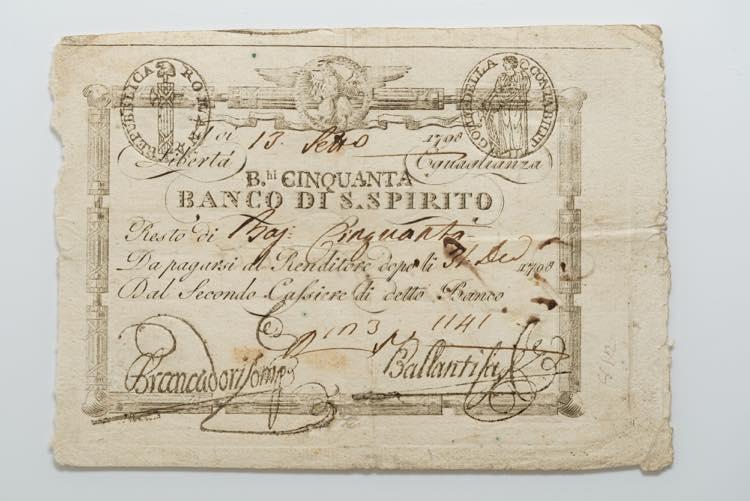 REPUBBLICA ROMANA
DELLA CONTABILIT
13 1798
Libertà Eguaglianza
B.hi CINQUANTA
BANCO DI S. SPIRITO
Resto di Baj: Cinquanta
Da pagarsi al Renditore dopo li 31. 1798
Dal Secondo Cassiere di detto Banco
1141
Brancadori Comp
Ballanti